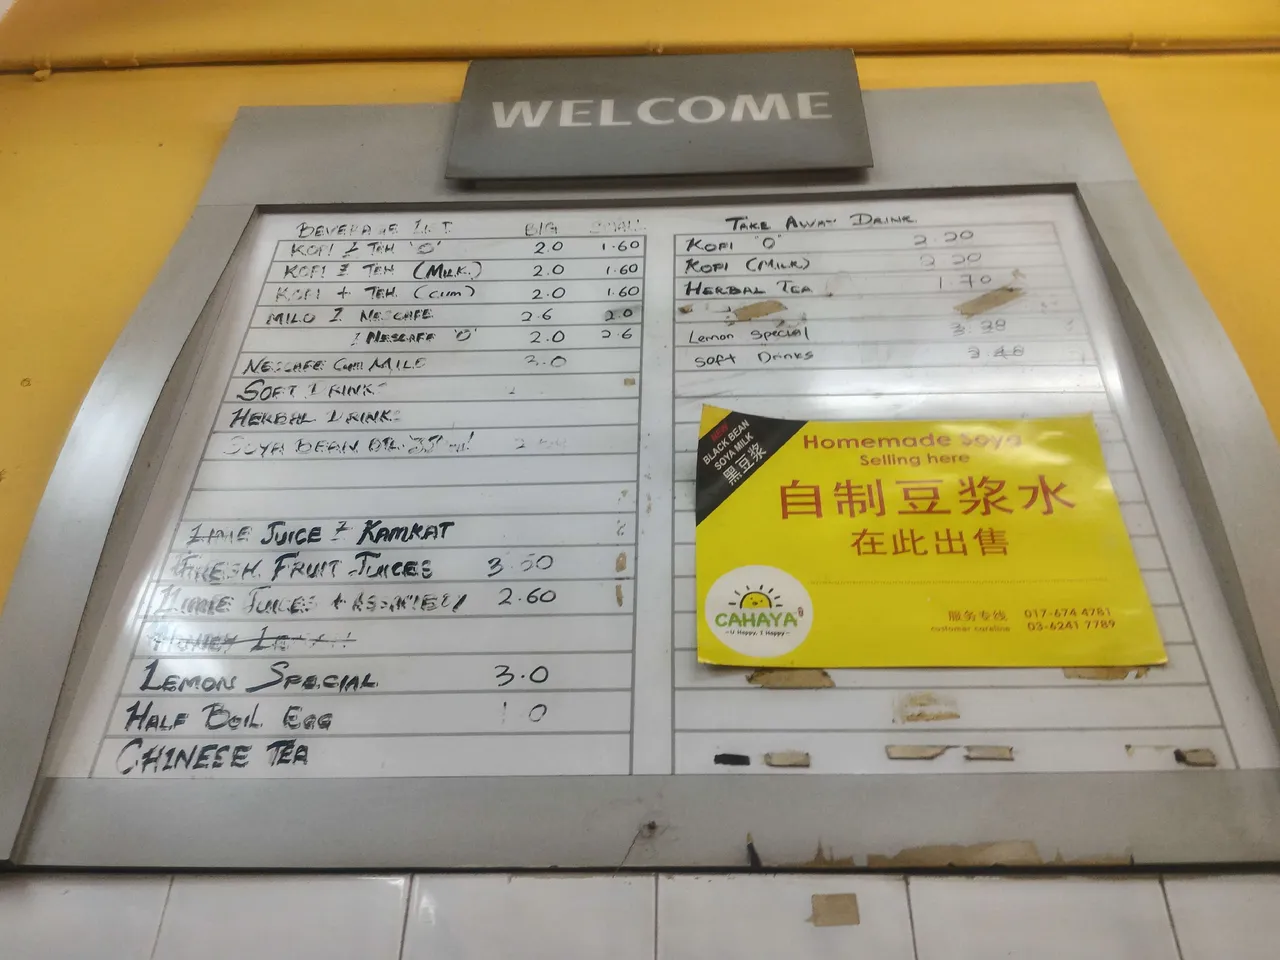 WELCOME
BEVERAGE LIST BIG SMALL
KOFI & TEH 'O' 2.0 1.60
KOFI & TEH (MILK) 2.0 1.60
KOFI + TEH (cum) 2.0 1.60
MILO & NESCAFE 2.6 2.0
NESCAFE 'O' 2.0 2.6
NESCAFE cum MILO 3.0
SOFT DRINKS
HERBAL DRINKS
SOYA BEAN
LIME JUICE & KAMKAT
FRESH FRUIT JUICES 3.50
JUICES + 2.60
LEMON SPECIAL 3.0
HALF BOIL EGG
CHINESE TEA
TAKE AWAY DRINK
KOFI "O" 2.20
KOFI (MILK) 2.20
HERBAL TEA 1.70
Lemon Special
Soft Drinks
NEW
BLACK BEAN
SOYA MILK
黑豆浆
Homemade Soya
Selling here
自制豆浆水
在此出售
CAHAYA
~U Happy, I Happy~
服务专线 017-674 4781
customer careline 03-6241 7789